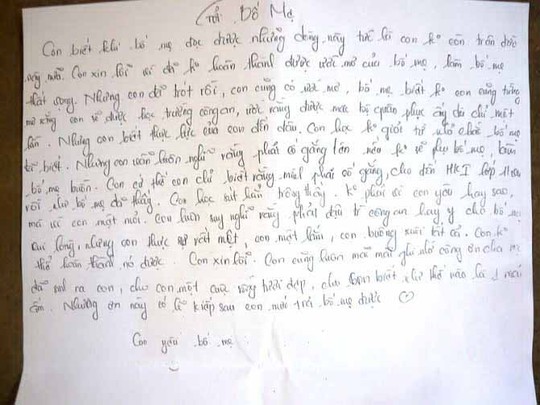 Gửi Bố Mẹ
Con biết khi bố mẹ đọc được những dòng này tức là con ko còn trên đời
này nữa. Con xin lỗi vì đã ko hoàn thành được ước mơ của bố mẹ, làm bố mẹ
thất vọng. Nhưng con đã trót rồi, con cũng có ước mơ, bố mẹ biết ko con cũng từng
mơ rằng con sẽ được học trường công an, ước rằng được mặc bộ quân phục ấy dù chỉ một
lần. Nhưng con biết thực lực của con đến đâu. Con học ko giỏi từ nhỏ chắc bố mẹ
đã biết. Nhưng con luôn luôn nghĩ rằng phải cố gắng lên nếu ko sẽ phụ bố mẹ, làm
bố mẹ buồn. Con cố thế con chỉ biết rằng mình phải cố gắng, cho đến HKI lớp 11
rồi như bố mẹ đã thấy. Con học sút hẳn trông thấy. ko phải vì con yêu hay sao
mà vì con mệt mỏi. Con luôn suy nghĩ rằng phải đậu trường công an hay y cho bố mẹ
vui lòng, nhưng con thực sự rất mệt, con mệt lắm, con buông xuôi tất cả. Con ko
thể hoàn thành nó được. Con xin lỗi. Con cũng luôn mãi mãi ghi nhớ công ơn cha mẹ
đã sinh ra con, cho con một cuộc sống tươi đẹp, cho con biết như thế nào là 1 mái
ấm. Nhưng ơn này có lẽ kiếp sau con mới trả bố mẹ được
Con yêu bố mẹ